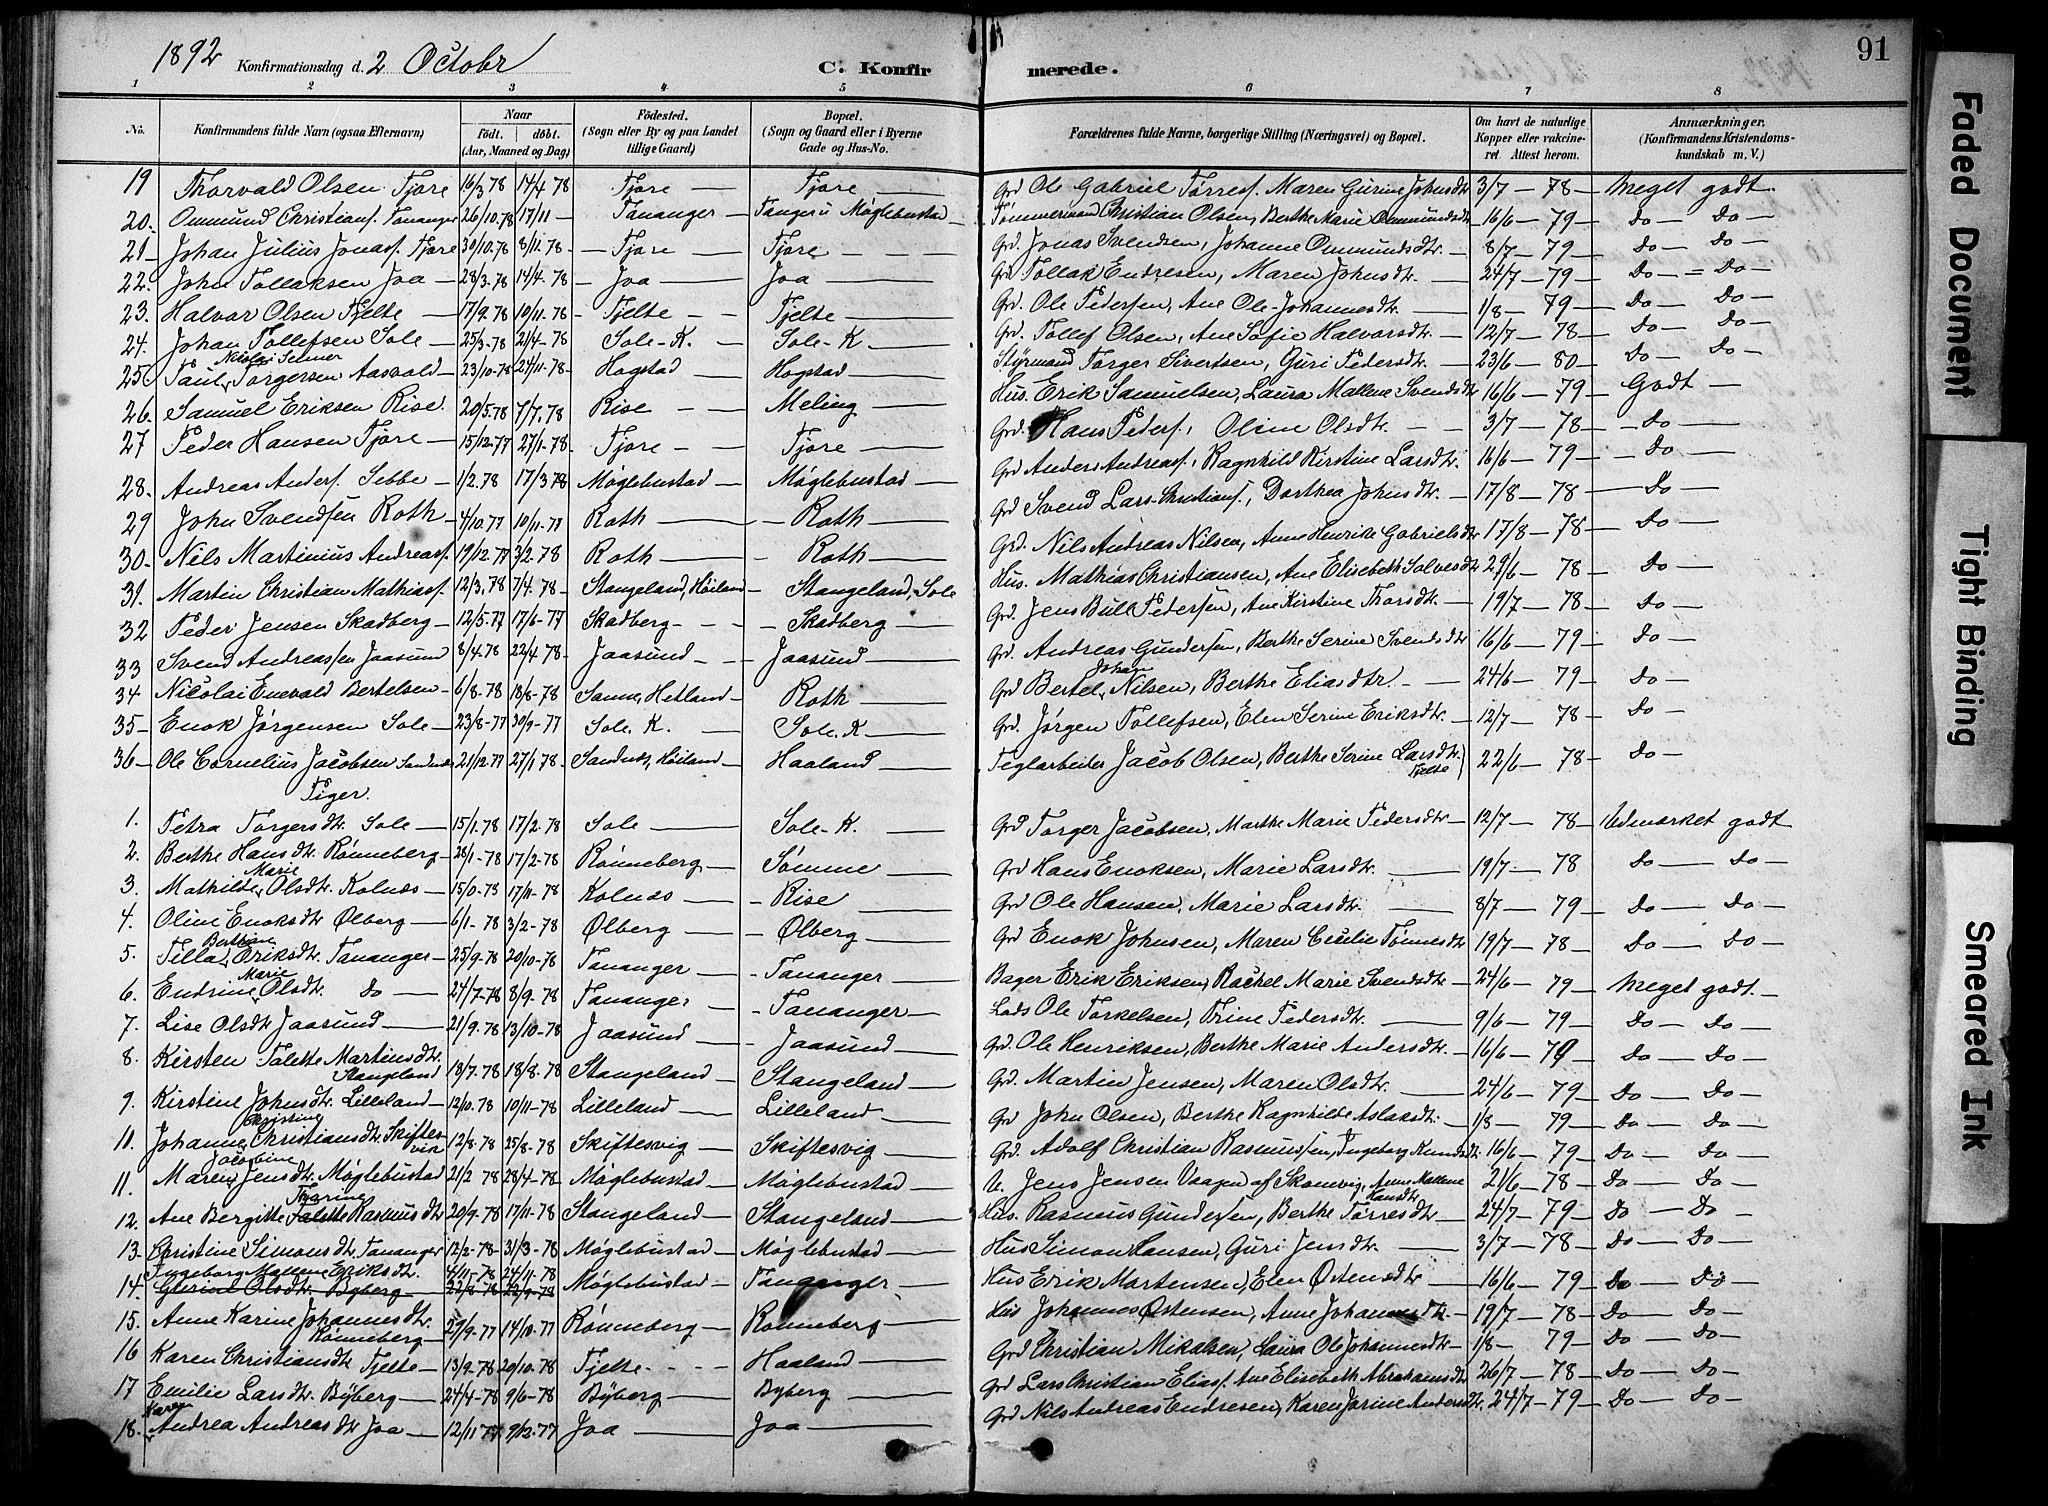 1892 Konfirmationsdag d. 2 Octobr C. Konfirmerede. 91
1 2 3 4 5 6 7 8
No. Konfirmandens fulde Navn (ogsaa Efternavn) Naar født. døbt. (Aar, Maaned og Dag) Fødested. (Sogn eller By og paa Landet tillige Gaard) Bopæl. (Sogn og Gaard eller i Byerne Gade og Hus-No. Forældrenes fulde Navne, borgerlige Stilling (Næringsvei) og Bopæl. Om havt de naturlige Kopper eller vakcineret Attest herom. Anmærkninger. (Konfirmandens Kristendomskundskab m. V.)
19 Thorvald Olsen Tjore 16/3 78 14/4 78 Tjore — Tjore — Grd Ole Gabriel Tørress. Maren Gurine Johnsdtr 3/7 — 78 — Meget godt.
20. Ommund Christians. Tananger 26/10.78 17/11 — Tananger — Tanger u Møglebustad — Tømmermand Christian Olsen, Berthe Marie Ommundsdtr 16/6 — 79 — Do — Do —
21 — Johan Julius Jonass. Tjore 30/10.78 8/12. 78 — Tjore — Tjore — Grd. Jonas Svendsen, Johanne Ommundsdtr. — 8/7 — 79 — Do — Do —
22. John Tollaksen Joa — 28/3.78 14/4. 78 — Joa — Joa — Grd Tollak Endresen, Maren Johnsdtr. — 24/7 — 79 — Do — Do —
23. Halvor Olsen Tjelte — 17/9. 78 10/11. 78 — Tjelte — Tjelte — Grd. Ole Pedersen, Ane Ole Johannesdtr. — 1/8 — 79 — Do — Do —
24. Johan Tollefsen Sole — 25/3-78 21/4-78 Sole-K. — Sole-K — Grd. Tollef Olsen, Ane Sofie Halvorsdtr. — 12/7 — 78 — Do — Do —
Nicolai Selmer
25. Paul Torgersen Aasvald — 23/10-78 24/11-78 — Hogstad — Hogstad — Styrmand Torger Sivertsen, Guri Pedersdtr. — 23/6 — 80 — Do — Do —
26. Samuel Eriksen Rise. 20/5.78 7/7. 78 Rise — Meling — Hus. Erik Samuelsen, Laura Mallena Svendsdtr 16/6 — 79 — Godt —
27 Peder Hansen Tjore — 15/12.77 27/1.78 — Tjore — Tjore — Grd. Hans Peders., Oline Olsdtr. — 3/7 — 78 — Do —
28. Andreas Anders. Sebbe — 1/2.78 17/3 78 Møglebustad — Møglebustad — Grd Anders Andreass., Ragnhild Kirstine Larsdtr. 16/6 — 79 — Do —
29 John Svendsen Roth — 4/10.77 10/11-77 Roth — Roth — Grd Svend Lars Christians., Dorthea Johnsdtr. — 17/8 — 78 — Do —
30. Nils Martinius Andreass. 19/12.77 3/2.78 Roth — Roth — Grd. Nils Andreas Nilsen, Anne Henrike Gabrielsdtr 17/8 — 78 — Do —
31. Martin Christian Mathiass. 12/3.78 7/4. 78 — Stangeland, Høiland — Stangeland, Sole Hus. Mathias Christiansen, Ane Elisebeth Solvesdtr 29/6 — 78 — Do —
32 Peder Jensen Skadberg — 12/5-77 17/6-77 Skadberg — Skadberg — Grd. Jens Bull Pedersen, Ane Kirstine Thorsdtr. — 19/7 — 78 — Do —
33 Svend Andreassen Jaasund 8/4.78 22/4.78 — Jaasund — Jaasund — Grd. Andreas Gundersen, Berthe Serine Svendsdtr 16/6 — 79 — Do —
34 Nicolai Enevald Bertelsen — 6/8-78 18/8-78 Sanne, Hetland — Roth — Grd Bertel Johan Nilsen, Berthe Eliasdtr. — 24/6 — 79 — Do —
35 — Enok Jørgensen Sole — 23/8-77 30/9-77 Sole. K. — Sole. K — Grd. Jørgen Tollefsen, Elen Serine Eriksdtr. — 12/7 — 78 — Do —
36 — Ole Cornelius Jacobsen Sandnæs 21/12.77 27/1 78 — Sandnæs, Høiland — Haaland — Teglarbeider Jacob Olsen, Berthe Serine Larsdtr. Tjelte 22/6 — 78 — Do —
Piger.
1. Petra Torgersdtr. Sole — 15/1.78 17/2.78 Sole — Sole-K. — Grd Torger Jacobsen, Marthe Marie Pedersdtr — 12/7 — 78 — Udmærket godt
2. Berthe Hansdtr. Rønneberg — 28/1-78 17/2-78 Rønneberg — Sømme — Grd Hans Enoksen, Marie Larsdtr. — 19/7 — 78 Do — Do —
Marie
3. Mathilde Olsdtr. Kolnæs — 17/11-78 Kolnæs — Rise — Grd Ole Hansen, Marie Larsdtr. — 8/7 — 79 — Do — Do —
4. Oline Enoksdtr Ølberg — 6/1-78 3/2-78 Ølberg — Ølberg — Grd Enok Johnsen, Maren Cecilie Tønnesdtr 19/7 — 78 — Do — Do —
Berthine
5. Tilla Eriksdtr. Tananger — 25/9-78 20/10-78 Tananger — Tananger — Bager Erik Eriksen, Rachel Marie Svendsdtr. 24/6 — 79 — Meget godt. —
Marie
6. Endrine Olsdtr. Do — 24/7-78 8/9-78 Tananger — Tananger — Lods Ole Torkelsen, Trine Pedersdtr. — 9/6 — 79 — Do — Do —
7. Lise Olsdtr Jaasund — 21/9.78 13/10-78 Jaasund — Jaasund — Grd. Ole Henriksen, Berthe Marie Andersdtr. — 16/6 — 79 Do — Do —
8. Kirsten Talette Martinsdtr. Stangeland 18/7.78 18/8.78 Stangeland — Stangeland — Grd. Martin Jensen, Maren Olsdtr. — 24/6 — 79 — Do — Do —
9. Kirstine Johnsdtr. Lilleland — 12/10.78 10/11-78 Lilleland — Lilleland — Grd John Olsen, Berthe Ragnhilde Aslaksdtr. 1/8 — 79 — Do — Do —
Christine
11. Johanne Christiansdtr. Skiftesvik 12/8.78 25/8-78 Skiftesvig — Skiftesvig — Grd. Adolf Christian Rasmussen, Ingeborg Knudsdtr. 16/6 — 79 — Do — Do —
Jacobine
11. Maren Jensdtr. Møglebustad 21/2 78 28/4-78 Møglebustad — Møglebustad — Jens Jensen Vaagen af Skonevig, Anne Mallene Hansdtr. 21/6 — 78 — Do — Do —
Thorine
12. Ane Bergitte Talette Rasmusdtr 20/9.78 17/11-78 Stangeland — Stangeland — Hus. Rasmus Gundersen, Berthe Tørresdtr. — 24/7 — 79 — Do — Do —
13. Christine Simonsdtr. Tananger 12/2-78 — 31/3-78 Møglebustad — Møglebustad — Hus Simon Hansen, Guri Jensdtr. — 3/7 — 78 — Do — Do —
Ingeborg Mallene Eriksdtr. 4/11-78 24/11-78
14. Olsdtr. Byberg — 22/8-78 22/9-78 Møglebustad — Tananger — Hus Erik Martensen, Elen Østensdtr — 16/6 — 79 — Do — Do —
15. Anne Karine Johannesdtr. Rønneberg — 29/9-77 14/10.77 Rønneberg — Rønneberg — Hus Johannes Østensen, Anne Johannesdtr. — 19/7 — 78 — Do — Do —
16 Karen Christiansdtr Tjelte — 13/9-78 20/10.78 Tjelte — Haaland — Grd Christian Mikalsen, Laura Ole Johannesdtr — 1/8 — 79 — Do — Do —
17 Emilie Larsdtr. Byberg — 24/4-78 9/6-78 Byberg — Byberg — Grd Lars Christian Eliass. Ane Elisebeth Abrahamsdtr 26/7 — 78 — Do — Do —
Karen
18. Andrea Andreasdtr Joa — 12/11 77 9/12-77 Joa — Joa — Grd Nils Andreas Endresen, Karen Jorine Andersdtr. 24/7 — 79 — Do — Do —
Faded Document
Tight Binding
Smeared Ink